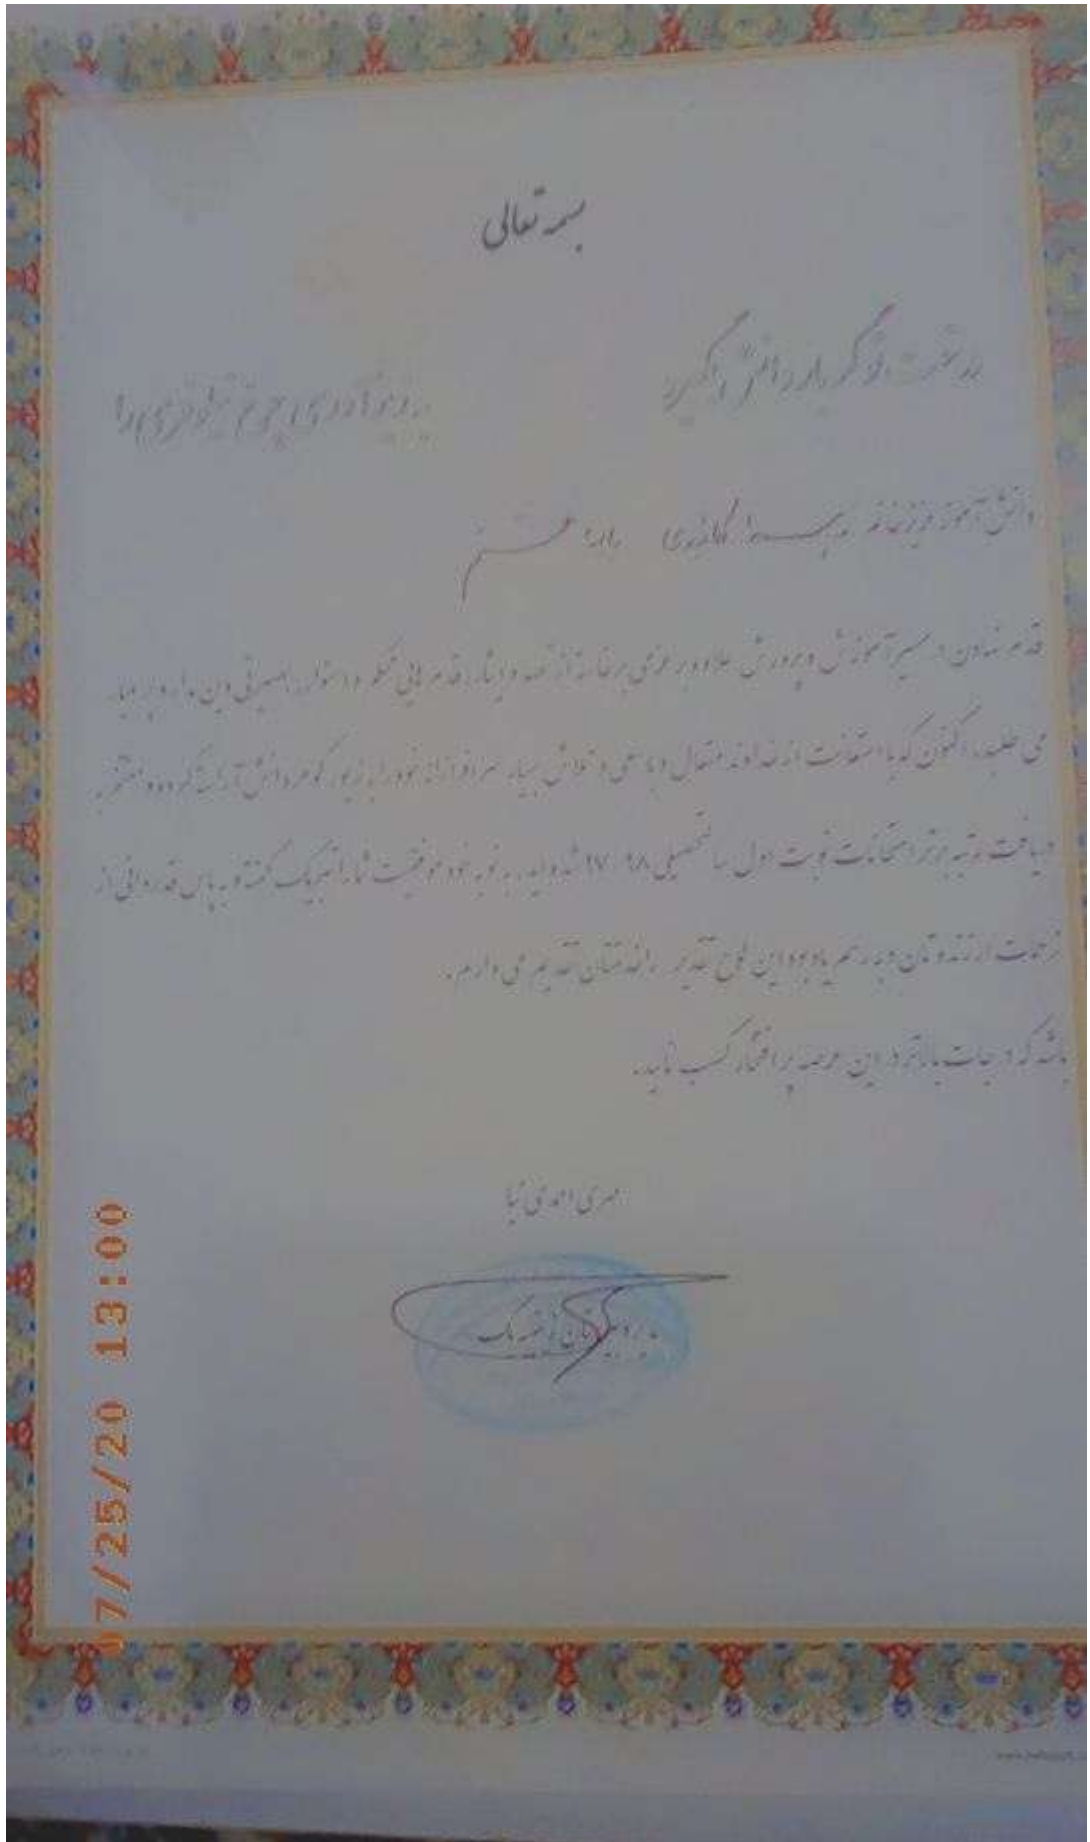 بسمه تعالی
درخت تو گر بار دانش بگیرد
به زیر آوری چرخ نیلوفری را
دانش آموز عزیز خانم پایه هشتم
قدم نهادن در مسیر آموزش و پرورش علاوه بر عزمی برخاسته از تعهد و ایثار، قدم هایی محکم و استوار، بصیرتی دین مدار
می طلبد، اکنون که با استعانت از خداوند متعال و با سعی و تلاش بسیار سرافرازانه خود را به زیور گوهر دانش آراسته کرده و مفتخر به
دریافت رتبه برتر امتحانات نوبت اول سال تحصیلی ۹۸-۹۷ شده اید، به نوبه خود موفقیت شما را تبریک گفته و به پاس قدردانی از
زحمات ارزنده تان و به رسم یادبود این لوح تقدیر را خدمتتان تقدیم می دارم.
باشد که درجات بالاتر در این عرصه پر افتخار کسب نمایید.
مهری احمدی نیا
مدیر دبیرستان یک
07/25/20 13:00